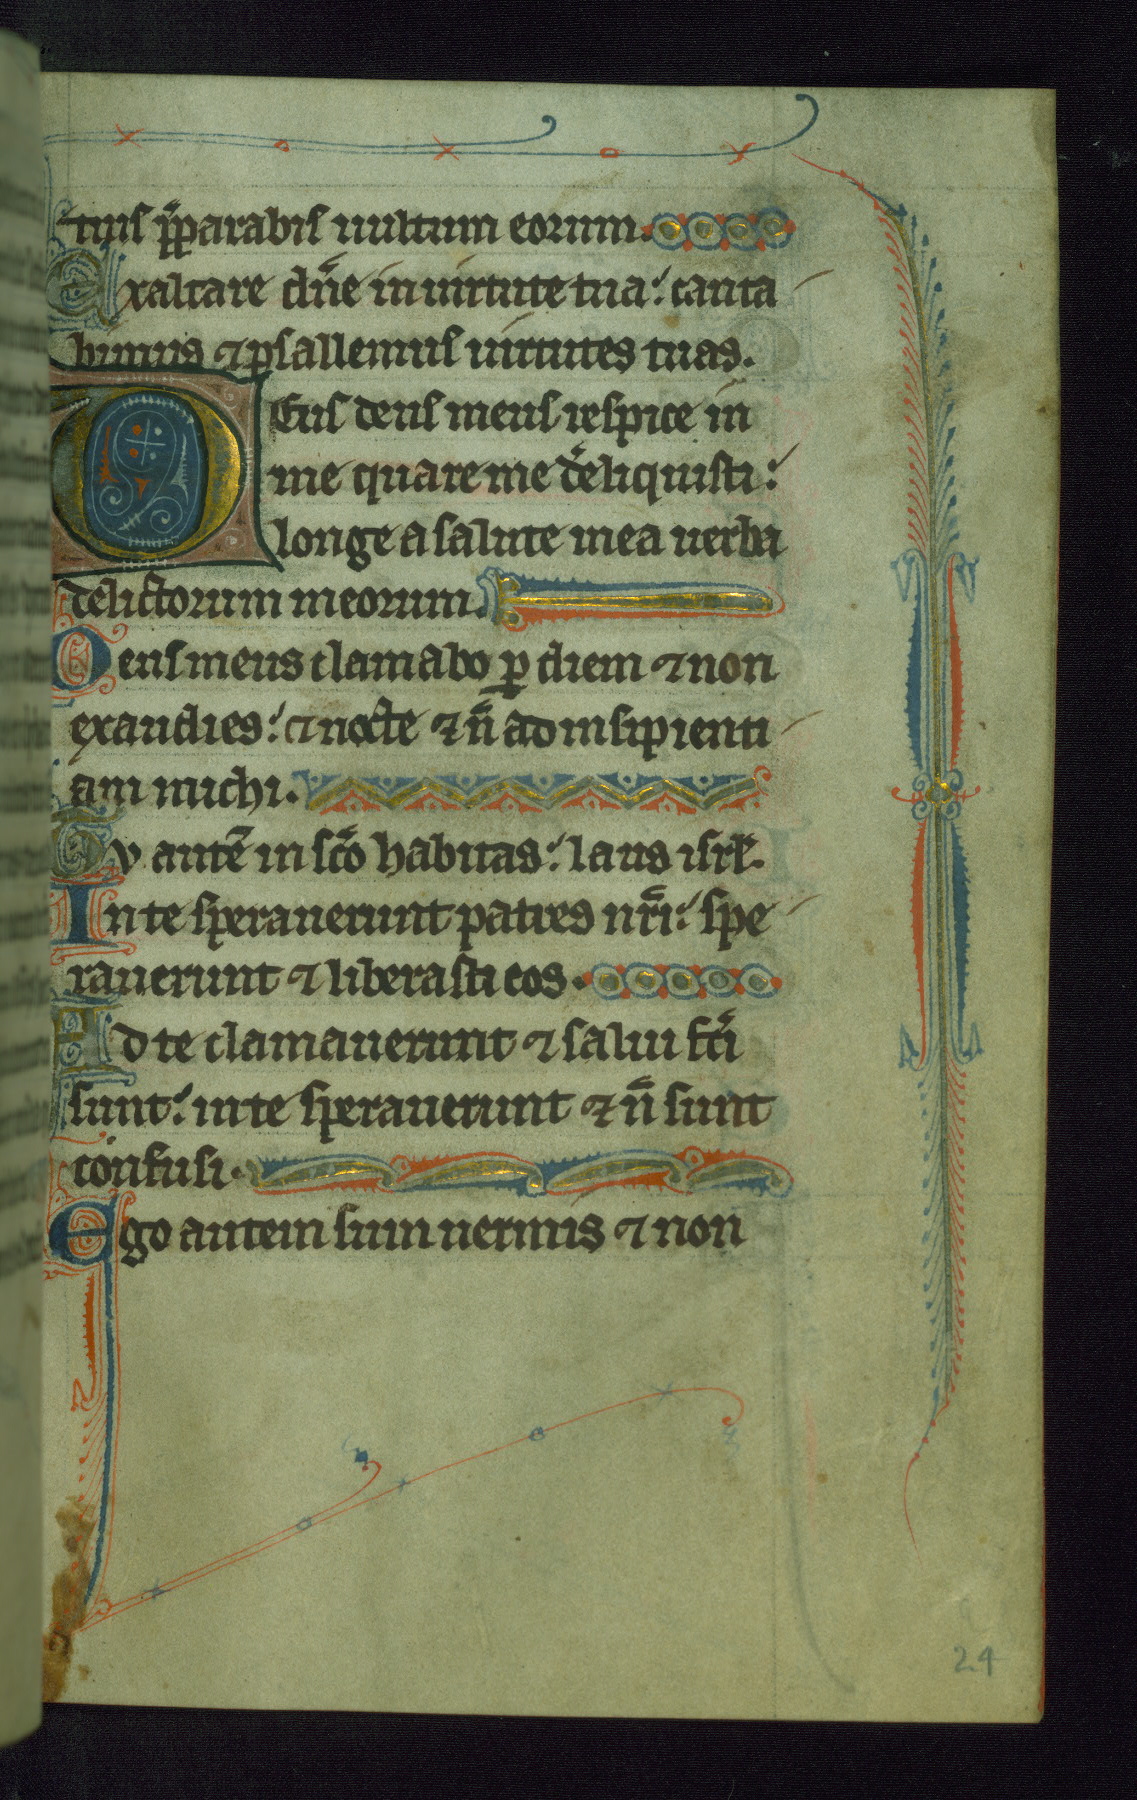 tuis p̄parabis uultum eorum.
Exaltare dn̄e in uirtute tua: canta
bimus ⁊ psallemus uirtutes tuas.
DEus deus meus respice in
me quare me dereliquisti:
longe a salute mea uerba
delictorum meorum.
Deus meus clamabo ꝑ diem ⁊ non
exaudies: ⁊ nocte ⁊ n̄ ad insipienti
am michi.
Tv autē in sc̄o habitas: laus isrl̄.
In te sperauerunt patres nr̄i: spe
rauerunt ⁊ liberasti eos.
Ad te clamauerunt ⁊ salui fc̄i
sunt: in te sperauerunt ⁊ n̄ sunt
confusi.
Ego autem sum uermis ⁊ non
24